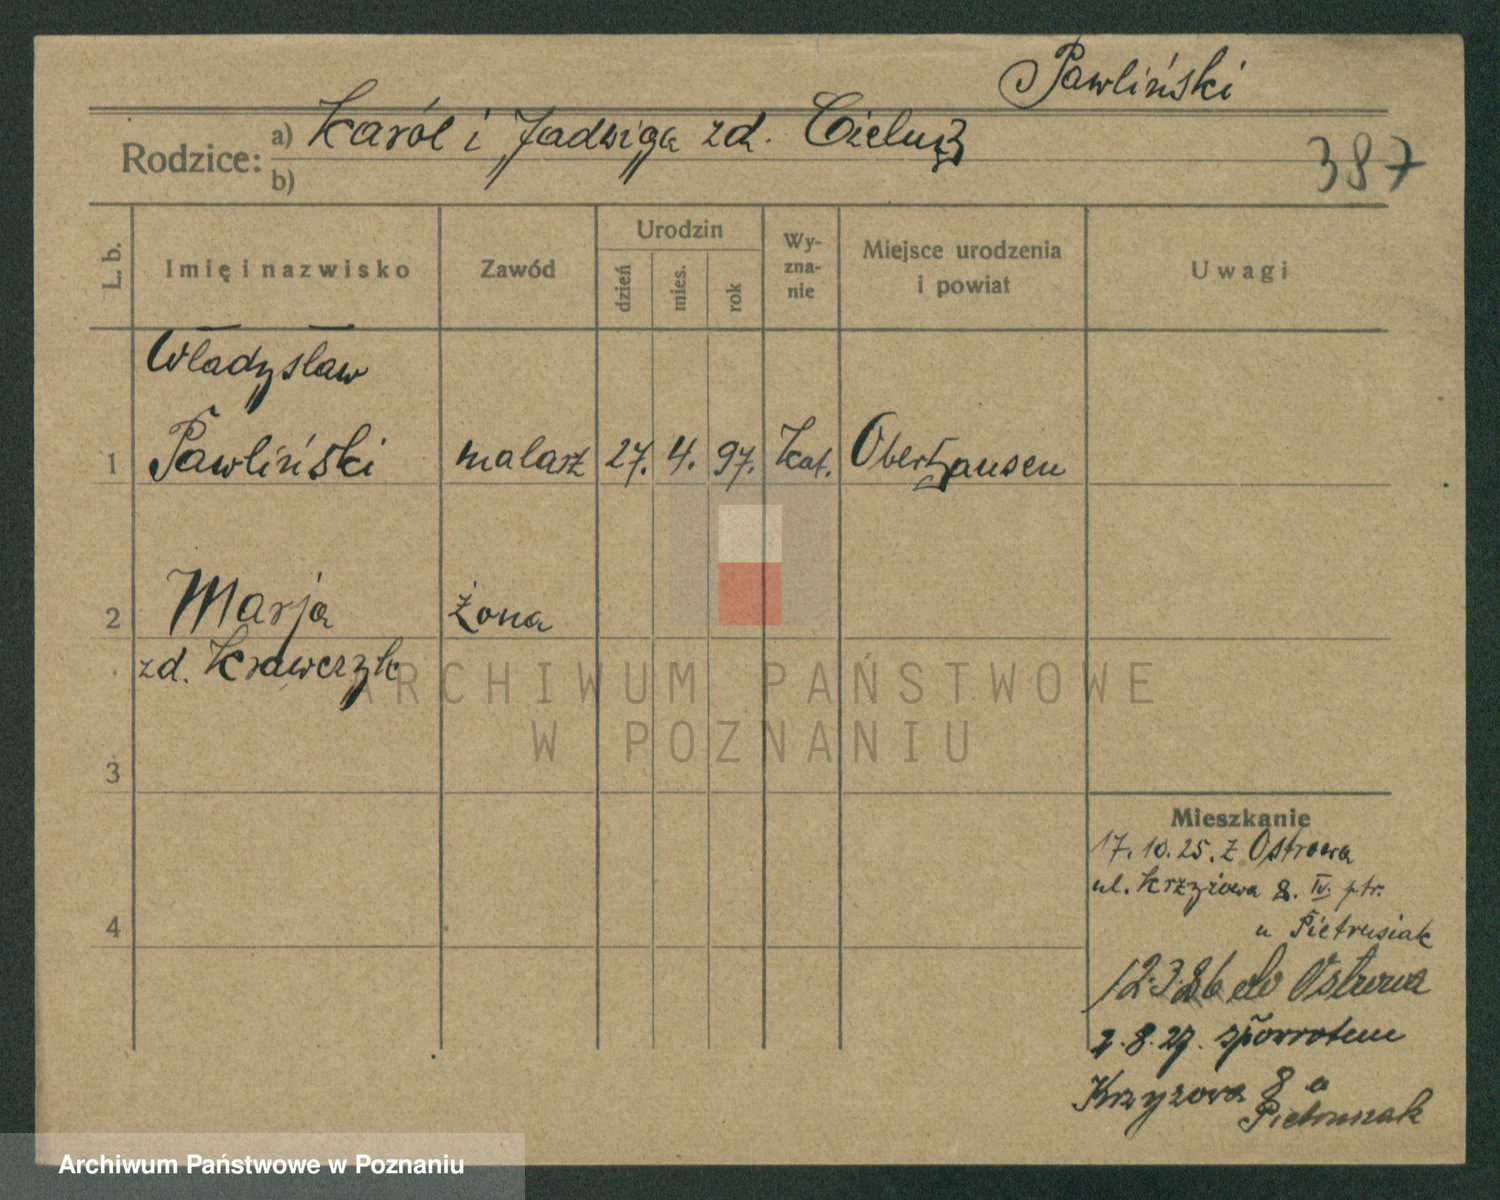 Pawliński
Rodzice: a) Karól i Jadwiga zd.
b)
387
L. b.
Imię i nazwisko
Zawód
Urodzin
dzień
mies.
rok
Wy-
zna-
nie
Miejsce urodzenia
i powiat
Uwagi
Władysław
1 Pawliński malarz 27. 4. 97. Kat. Oberhausen
2 Marja żona
zd. Krawczyk
3
4
Mieszkanie
17. 10. 25. z Ostrowa
ul. Krzyżowa 8. IV. ptr.
u Pietrusiak
12.3.26 do Ostrowa
8. 27. spowrotem
Krzyżowa 8 u
Pietrusiak
ARCHIWUM PAŃSTWOWE
W POZNANIU
Archiwum Państwowe w Poznaniu